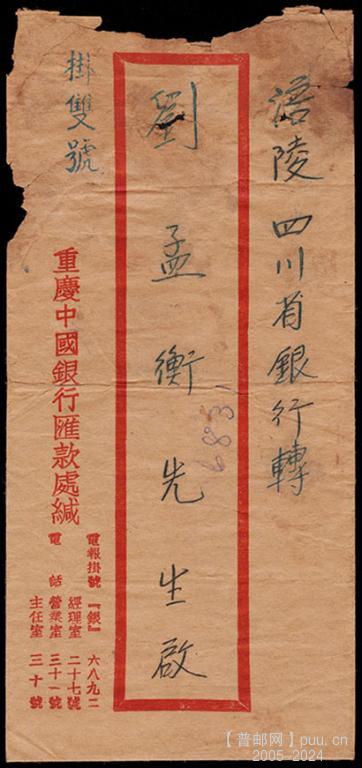 涪陵 四川省銀行轉
劉孟衡先生啟
6831
掛雙號
重慶中國銀行匯款處緘
電報掛號『銀』六八九二
電話 經理室 二十七號
營業室 三十一號
主任室 三十號
【普邮网】puu.cn
2005-2024